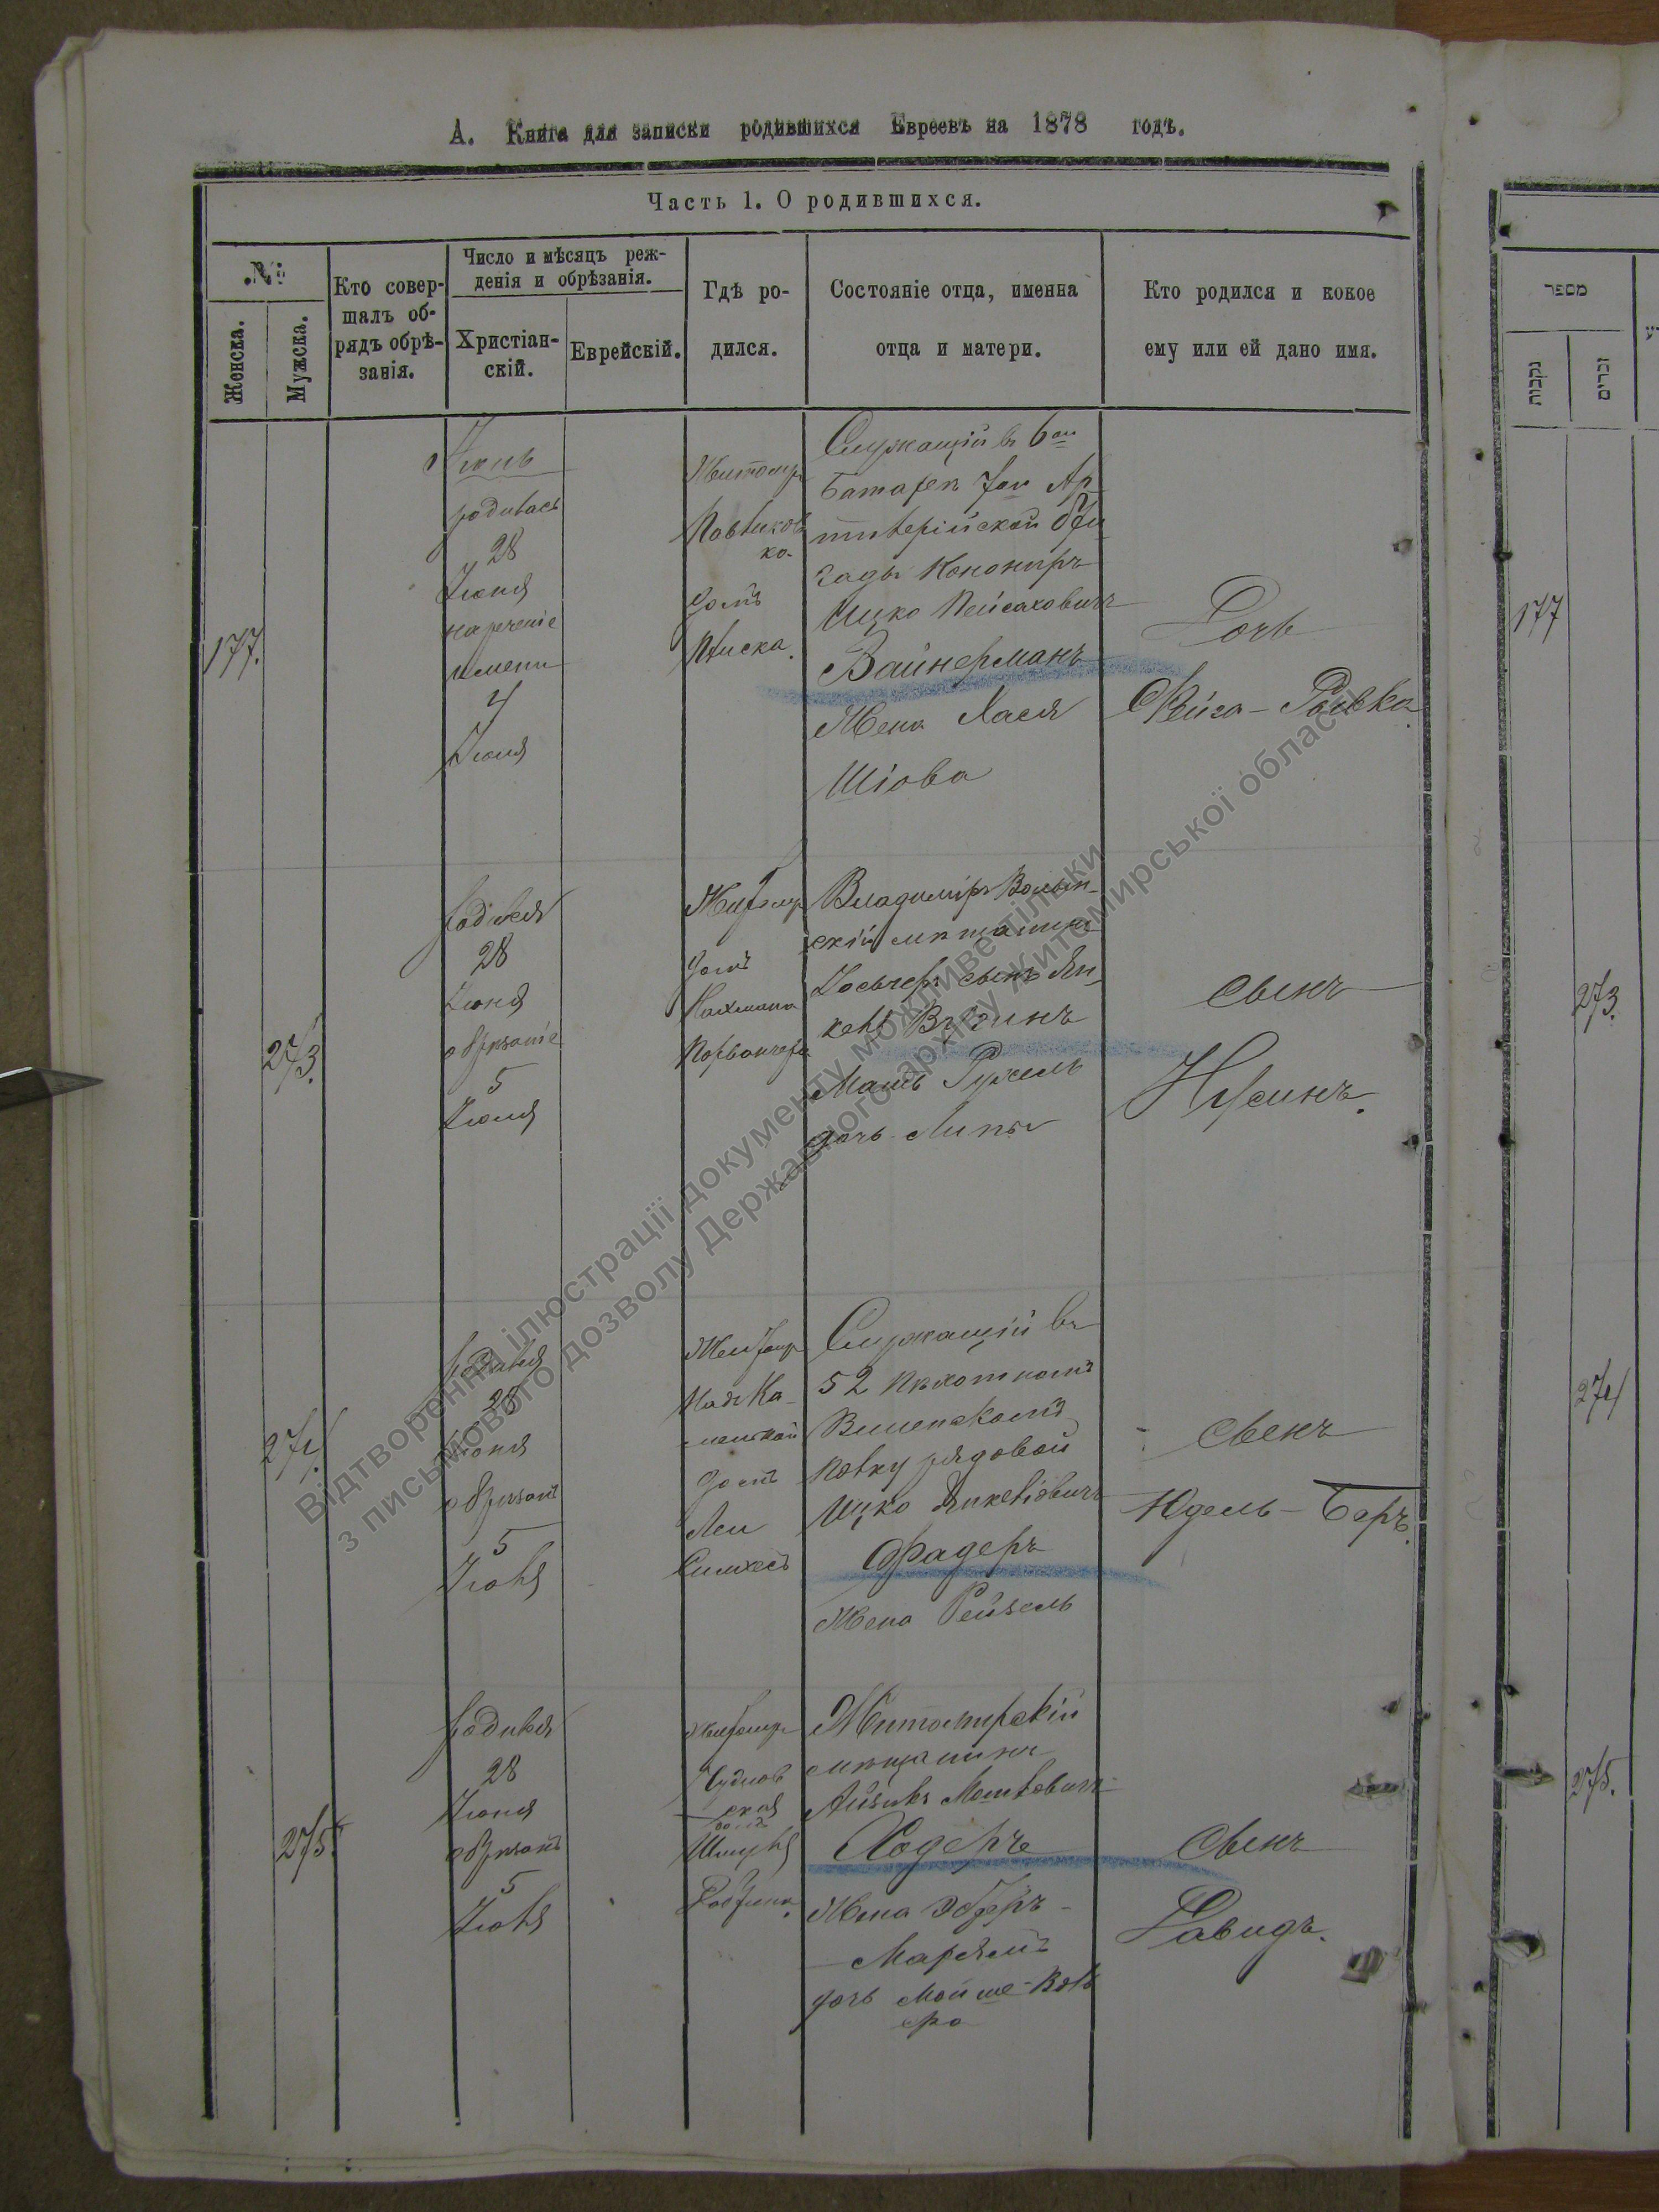 А. Книга для записки родившихся Евреевъ на 1878 годъ.
Часть 1. О родившихся.
№
Женска.
Мужска.
Кто совер-
шалъ об-
рядъ обрѣ-
занія.
Число и мѣсяцъ реж-
денія и обрѣзанія.
Христіан-
скій.
Еврейскій.
Гдѣ ро-
дился.
Состояніе отца, именна
отца и матери.
Кто родился и кокое
ему или ей дано имя.
177.
Іюнь
родилась
28
Іюня
нареченіе
имени
4
Іюля
Житомир
домъ
Служащій въ 6ой
батареи 7ой Ар
тилерійской бри
гады Канониръ
Ицко Пейсаховичъ
Вайнерманъ
Жена Хася
Шіова
Дочь
Фейга-Ривка
273.
Родился
28
Іюня
обрѣзаніе
5
Іюля
Житомир
домъ
Нахмана
Владиміръ Волын-
скій мѣщанинъ
сынъ Ян-
келя
Мать Ружель
дочь Липы
Сынъ
Нусинъ.
274.
Родился
28
Іюня
обрѣзанъ
5
Іюля
Житомир
домъ
Служащій въ
52 пѣхотномъ
Виленскомъ
полку рядовой
Ицко Янкелівичъ
Фрадеръ
Жена Рейзель
Сынъ
Юдель-Беръ.
275.
Родился
28
Іюня
обрѣзанъ
5
Іюля
Житомир
Чуднов
ская
домъ
Шмуля
Житомирскій
мѣщанинъ
Айзикъ Мошковичъ
Ходеръ
Жена
Марьямъ
дочь Мойше-Воль
фа
Сынъ
Давидъ.
מספר
נקבות
זכרים
177
273.
274
275.
Відтворення ілюстрації документу можливе тільки
з письмового дозволу Державного архіву Житомирської області